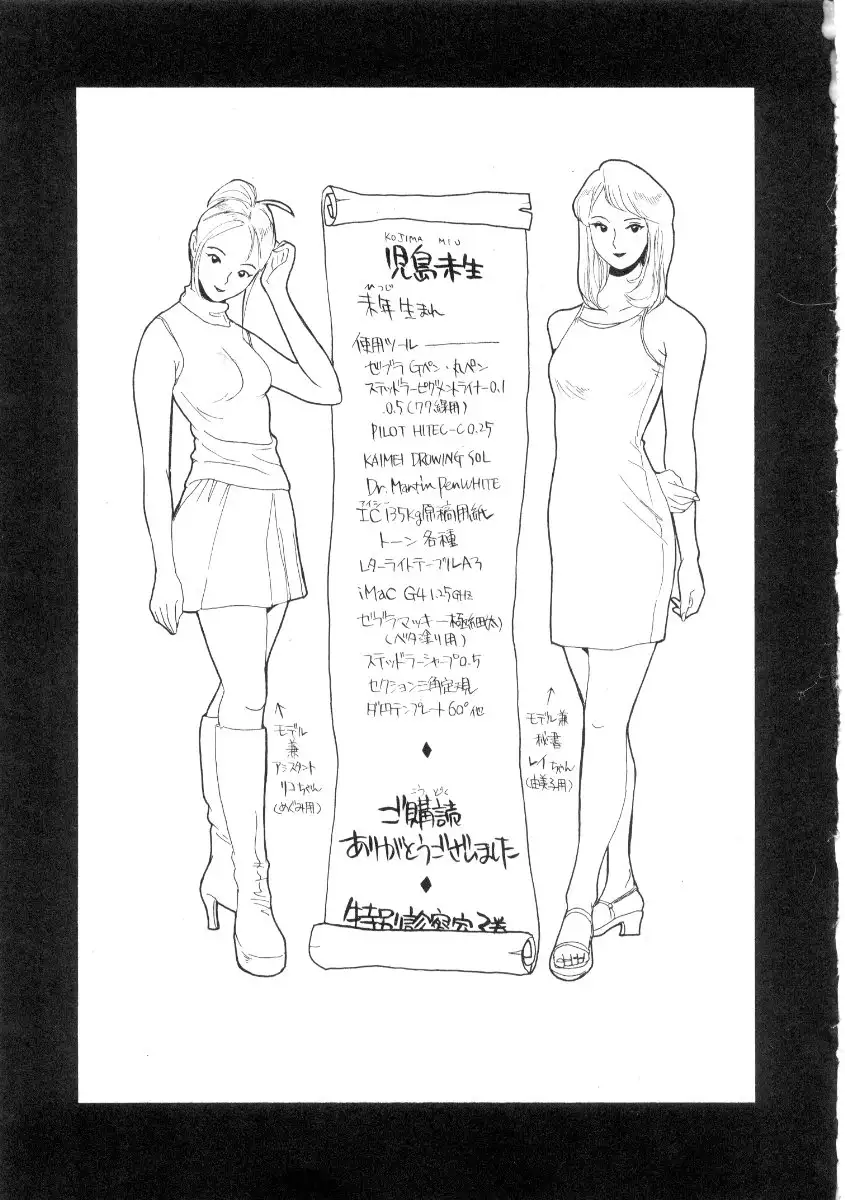 KOJIMA MIU
児島未生
ひつじ
未年生まれ
使用ツール
ゼブラ Gペン・丸ペン
ステッドラーピグメントライナー0.1
0.5(ワク線用)
PILOT HITEC-C 0.25
KAIMEI DROWING SOL
Dr. Martin Pen WHITE
アイシー
IC 135kg原稿用紙
トーン各種
レターライトテーブルA3
iMac G4 1.25GHz
ゼブラマッキー極細(太)
(ベタ塗り用)
ステッドラーシャープ0.5
セクション三角定規
ダエンテンプレート60°他
こうどく
ご購読
ありがとうございました
特別診察室 2巻
↑
モデル
兼
アシスタント
リコちゃん
(めぐみ用)
↑
モデル兼
秘書
レイちゃん
(由美子用)